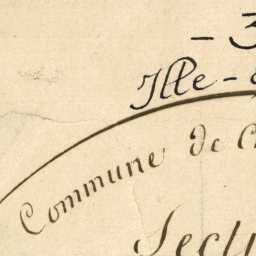 - 3
Ille-
Commune de
Sect